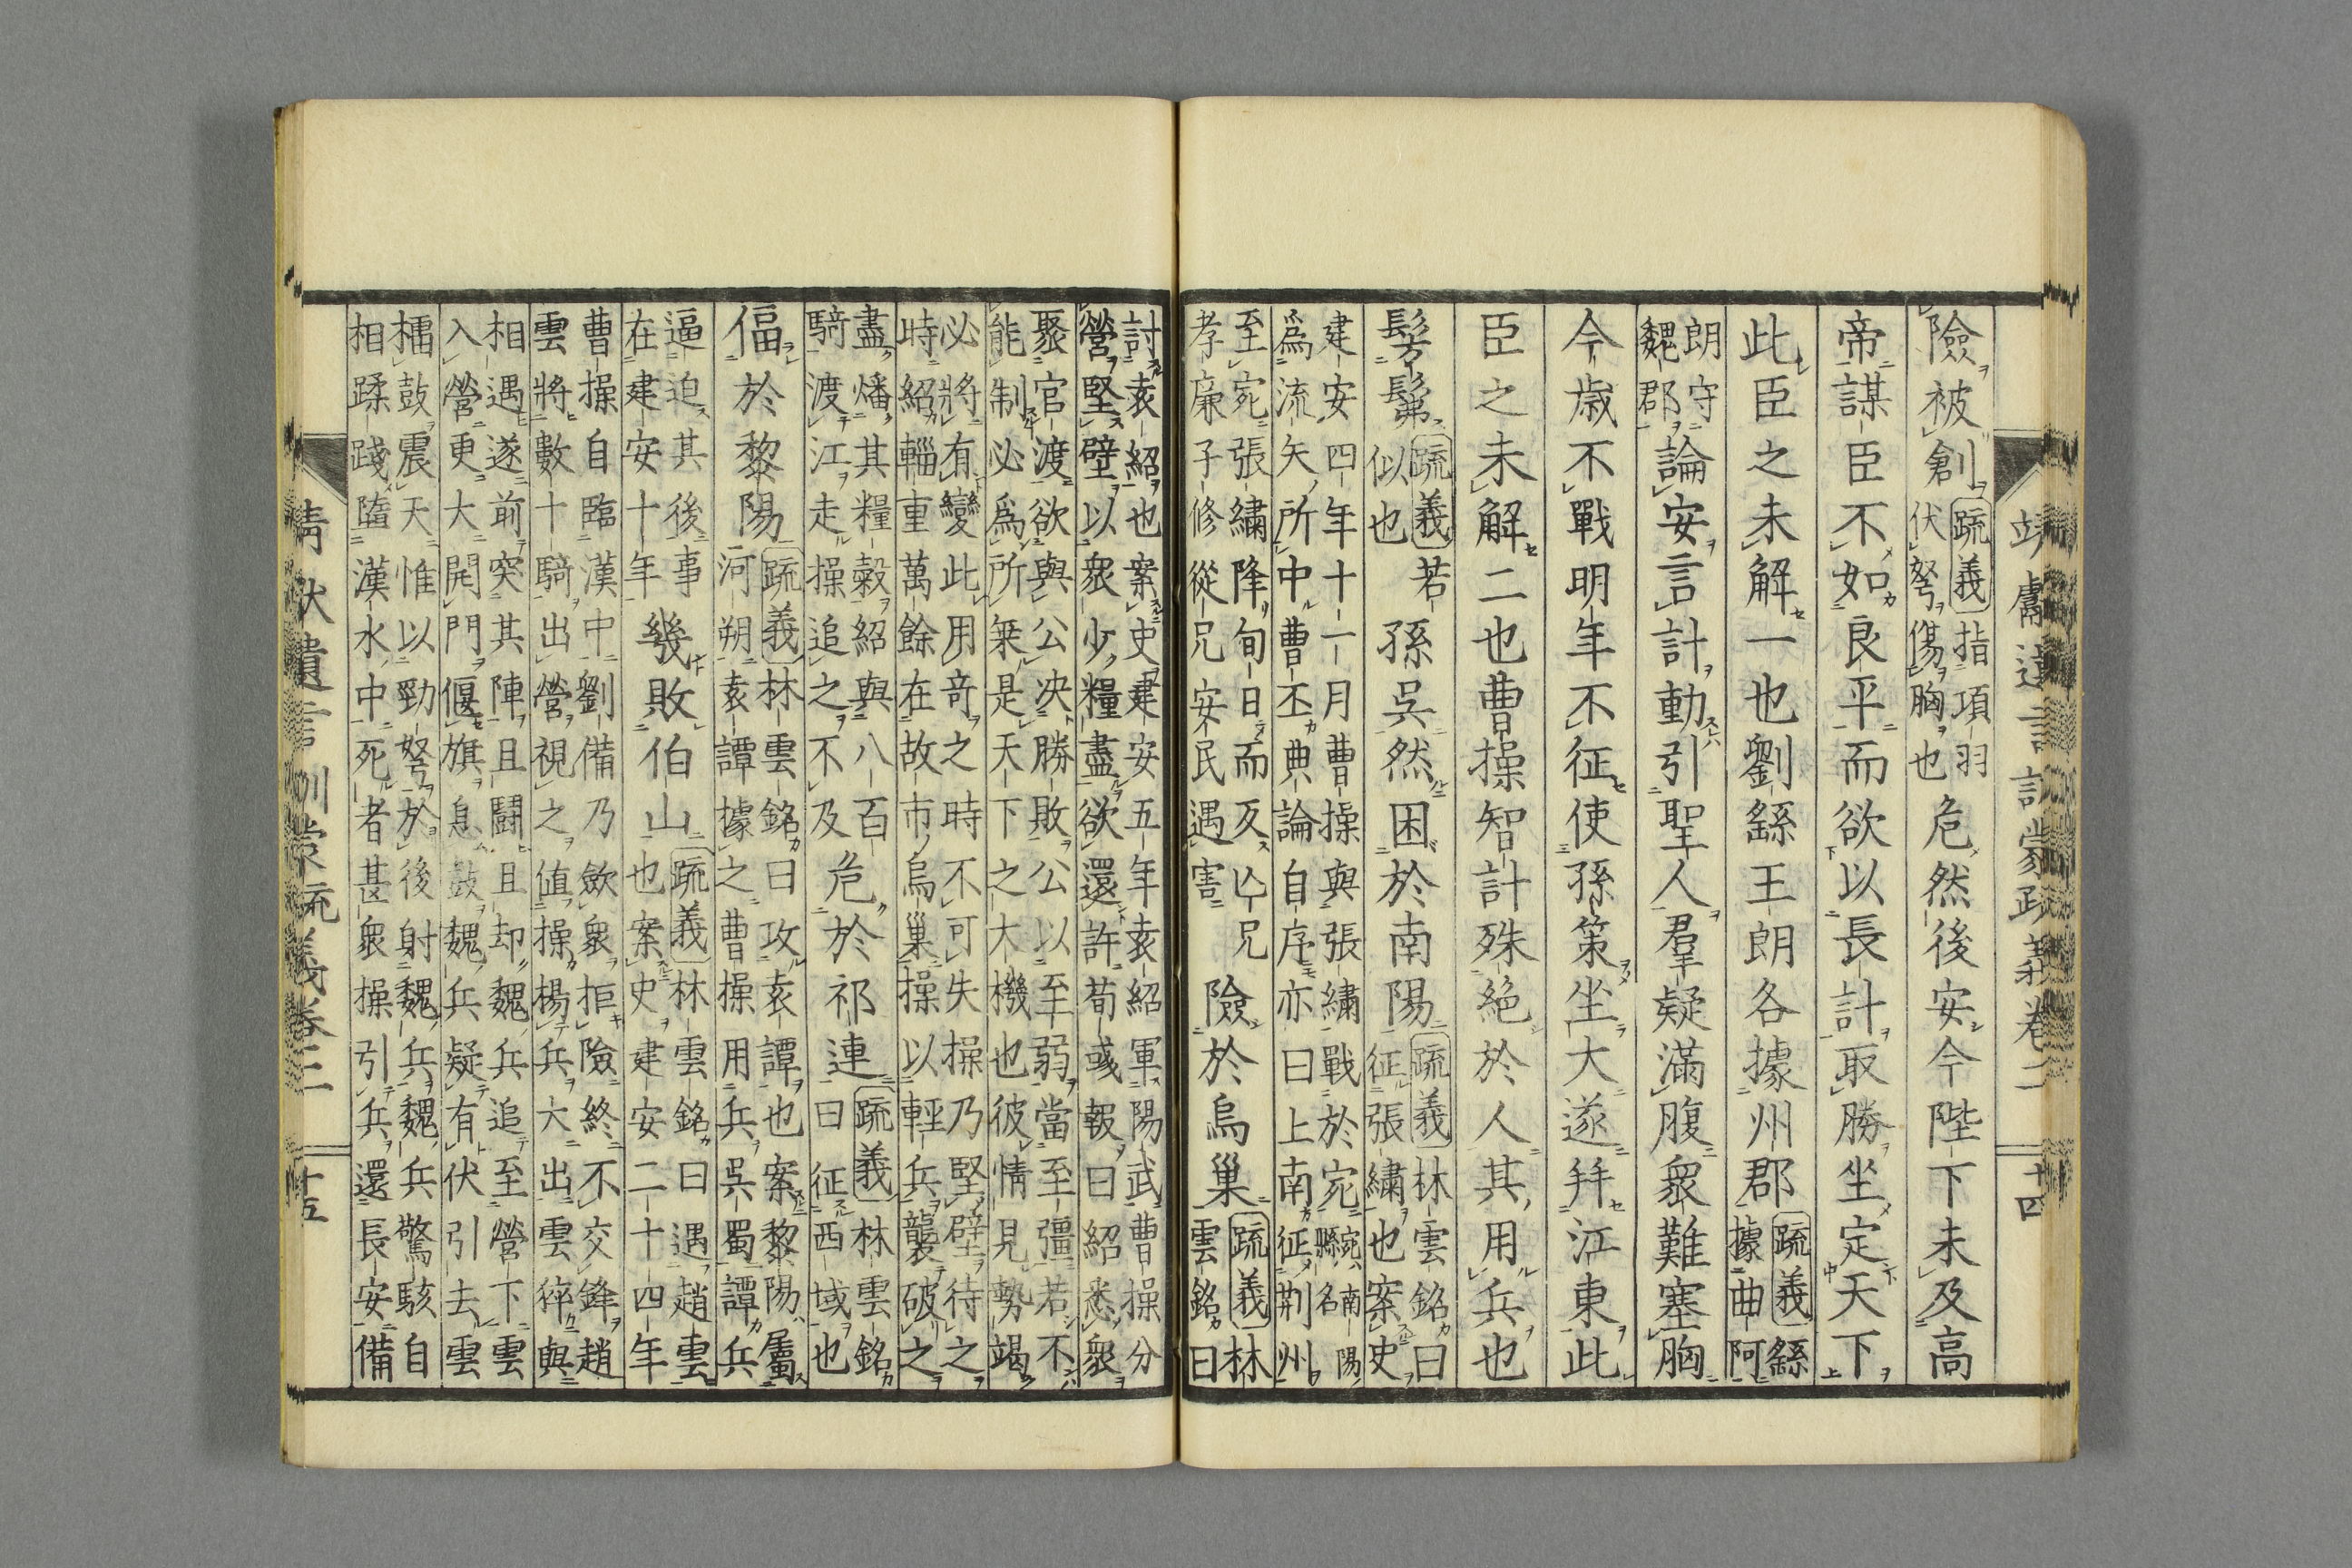 靖獻遺言訓蒙疏義卷二 十四
險被創疏義指項羽伏弩傷胸也危然後安今陛下未及高
帝謀臣不如良平而欲以長計取勝坐定天下
此臣之未解一也劉繇王朗各據州郡疏義繇據曲阿
朗守魏郡論安言計動引聖人羣疑滿腹衆難塞胸
今歲不戰明年不征使孫策坐大遂并江東此
臣之未解二也曹操智計殊絕於人其用兵也
髣髴疏義若似也孫吳然困於南陽疏義林雲銘曰征張繡也案史
建安四年十一月曹操與張繡戰於宛宛南陽縣名
爲流矢所中曹丕典論自序亦曰上南征荆州
至宛張繡降旬日而反亡兄
孝廉子修從兄安民遇害
險於烏巢疏義林雲銘曰
討袁紹也案史建安五年袁紹軍陽武曹操分
營堅壁以衆少糧盡欲還許荀彧報曰紹悉衆
聚官渡欲與公决勝敗公以至弱當至彊若不
能制必爲所乗是天下之大機也彼情見勢竭
必將有變此用竒之時不可失操乃堅壁待之
時紹輜重萬餘在故市烏巢操以輕兵襲破之
盡燔其糧糓紹與八百騎渡江走操追之不及危於祁連疏義林雲銘曰征西域也
偪於黎陽疏義林雲銘曰攻袁譚也案黎陽屬河朔袁譚據之曹操用兵吳蜀譚兵
逼迫其後事在建安十年幾敗伯山疏義林雲銘曰遇趙雲也案史建安二十四年
曹操自臨漢中劉備乃歛衆拒險終不交鋒趙
雲將數十騎出營視之値操楊兵大出雲猝與
相遇遂前突其陣且鬪且却魏兵追至營下雲
入營更大開門偃旗息鼓魏兵疑有伏引去雲
櫑鼓震天惟以勁弩於後射魏兵魏兵驚駭自
相蹂踐墮漢水中死者甚衆操引兵還長安備
靖獻遺言訓蒙疏義卷二 十五